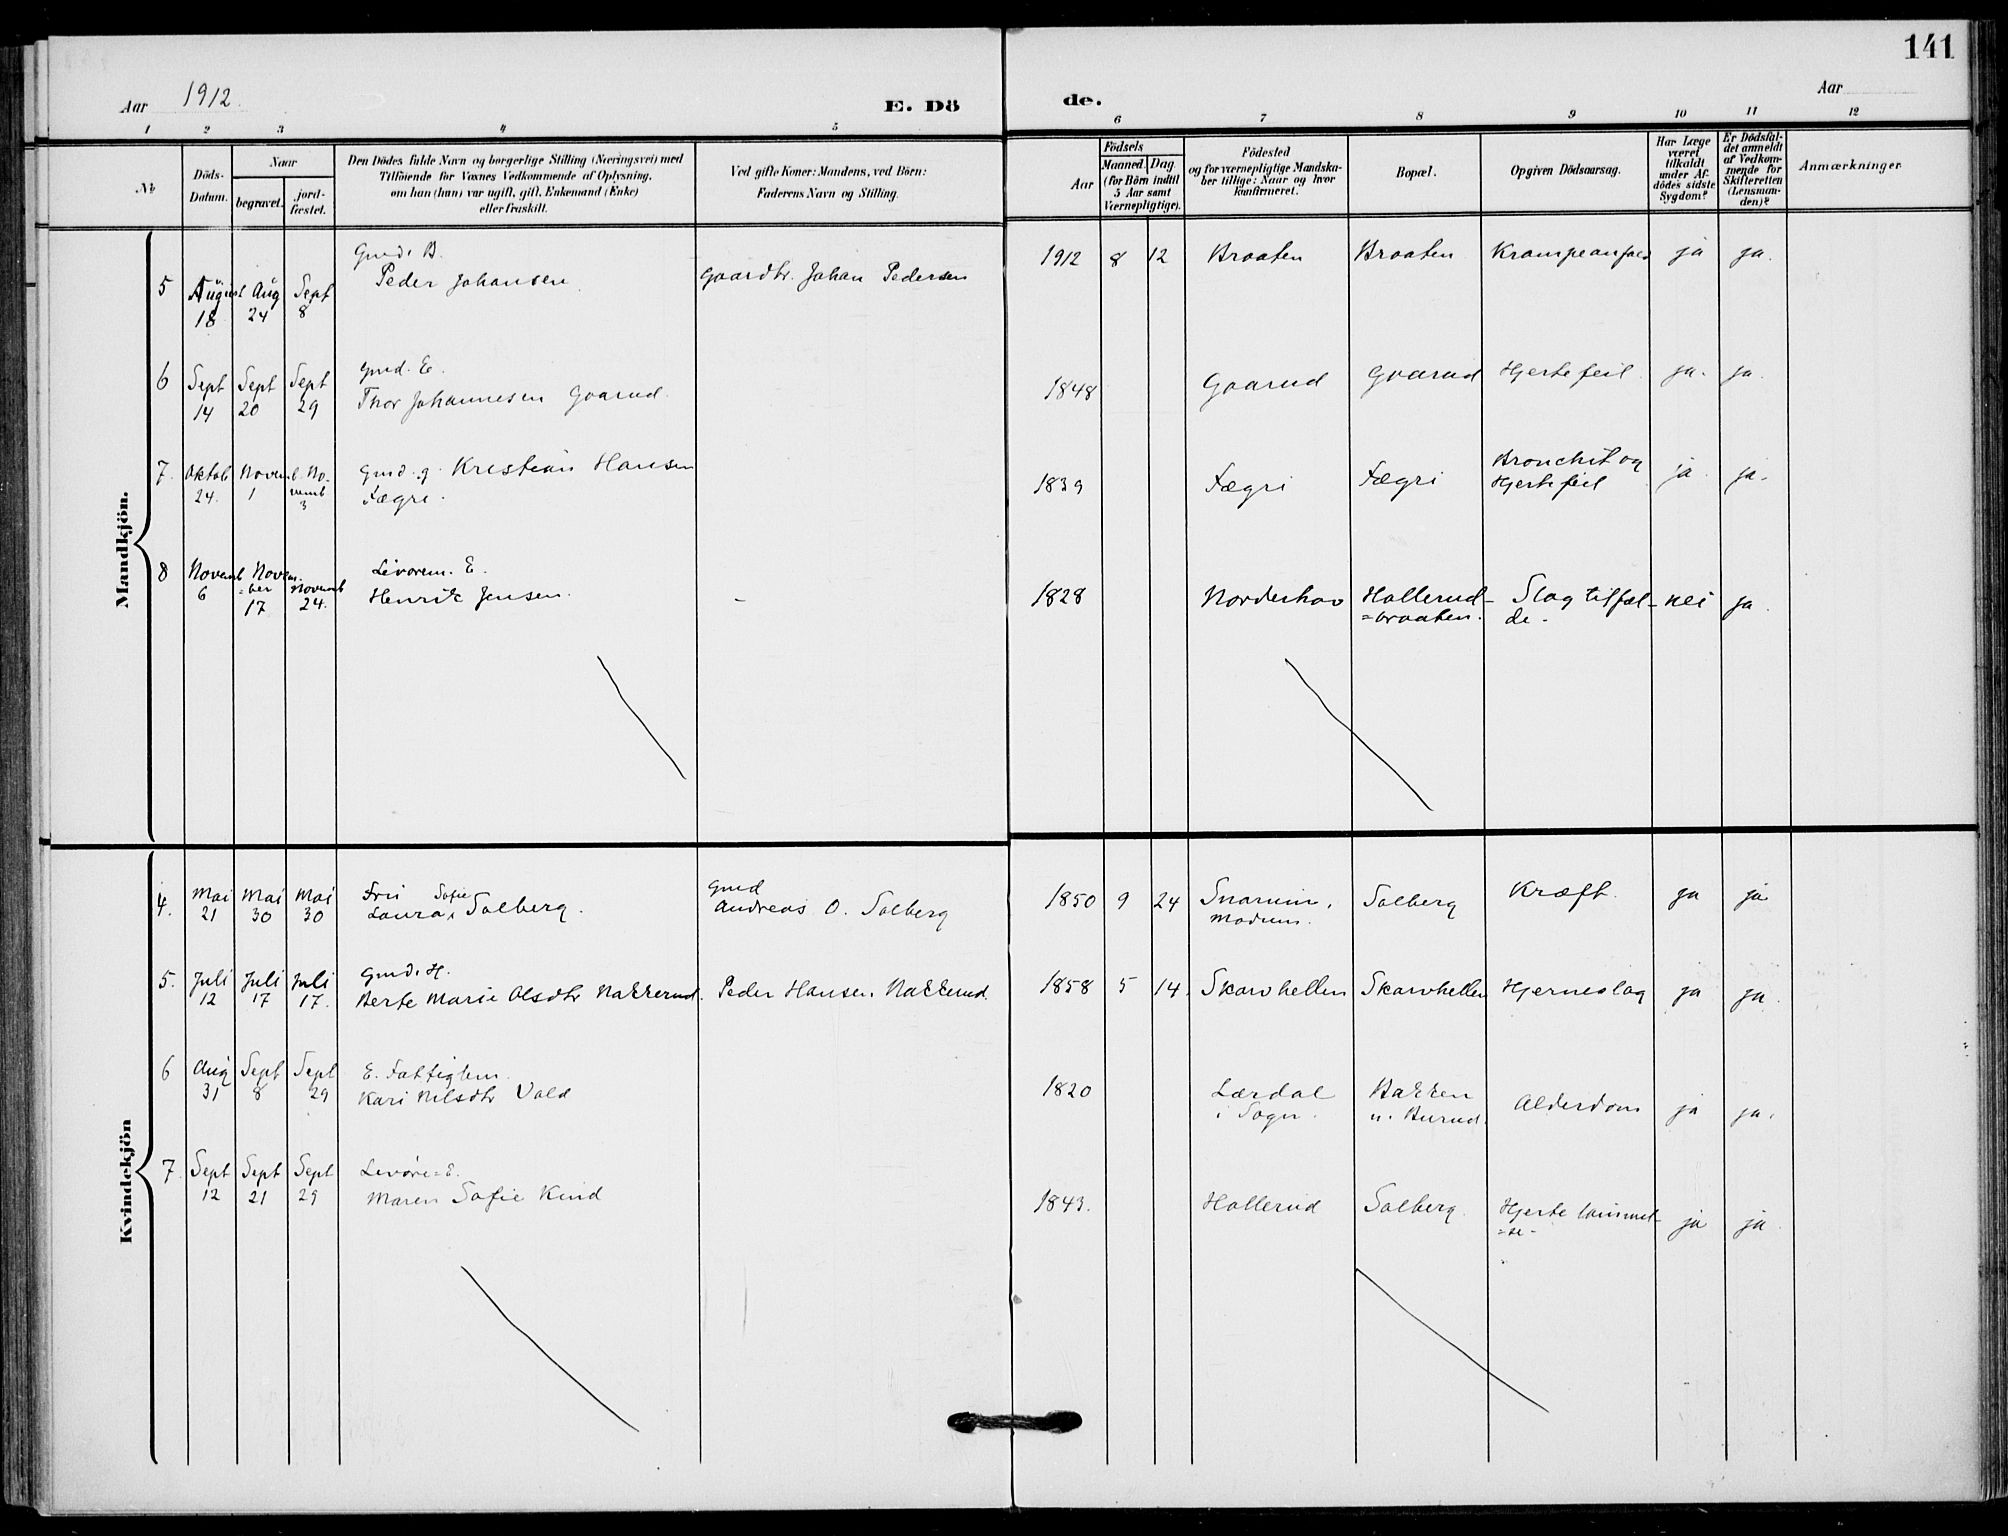 141
Aar 1912.
E. Dö
de.
Aar
1 2 3 4 5 6 7 8 9 10 11 12
No
Döds-Datum.
Naar
begravet.
jord-fæstet.
Den Dödes fulde Navn og borgerlige Stilling (Næringsvei) med
Tilföiende for Voxnes Vedkommende af Oplysning,
om han (hun) var ugift, gift, Enkemand (Enke)
eller fraskilt.
Ved gifte Koner: Mandens, ved Börn:
Faderens Navn og Stilling.
Födsels
Aar
Maaned. Dag
(for Börn indtil
5 Aar samt
Værnepligtige).
Födested
og for værnepligtige Mandska-
ber tillige: Naar og hvor
konfirmeret.
Bopæl.
Opgiven Dödsaarsag.
Har Læge
været
tilkaldt
under Af-
dödes sidste
Sygdom?
Er Dödsfal-
det anmeldt
af Vedkom-
mende for
Skifteretten
(Lensman-
den)?
Anmærkninger
Mandkjön.
5 August 18 Aug 24 Sept 8 Gmd. B. Peder Johansen Gaardbr. Johan Pedersen 1912 8 12 Braaten Braaten Krampeanfald ja ja.
6 Sept 14 Sept 20 Sept 29 Gmd. E. Thor Johannesen Goarud. 1848 Goarud Goarud Hjertefeil. ja. ja.
7. Oktob 24. Novemb. 1 No-vemb 3 Gmd. g. Kristian Hansen Fægri. 1839 Fægri Fægri Bronchit og Hjertefeil ja ja.
8 Novemb 6 Novem=ber 17 Novemb 24. Livørem. E. Henrik Jensen. - 1828 Norderhov Hollerud-=braaten. Slagtilfæl-de. nei ja.
Kvindekjön
4. Mai 21 Mai 30 Mai 30 Fru Laura Sofie Solberg. Gmd Andreas O. Solberg 1850 9 24 Snarum, Modum. Solberg Kræft. ja ja
5. Juli 12 Juli 17 Juli 17. Gmd. H. Berte Marie Olsdtr Nakkerud. Peder Hansen Nakkerud. 1858 5 14. Skarvhellen Skarvhellen Hjerneslag ja ja.
6 Aug 31 Sept 8 Sept 29 E. Fattiglem. Kari Nilsdtr Vald 1820 Lærdal i Sogn. Bakken u. Burud. Alderdom ja ja.
7. Sept 12 Sept 21 Sept 29 Livøre=E. Maren Sofie Kind 1843. Hollerud Solberg. Hjertelammel-=se- ja ja